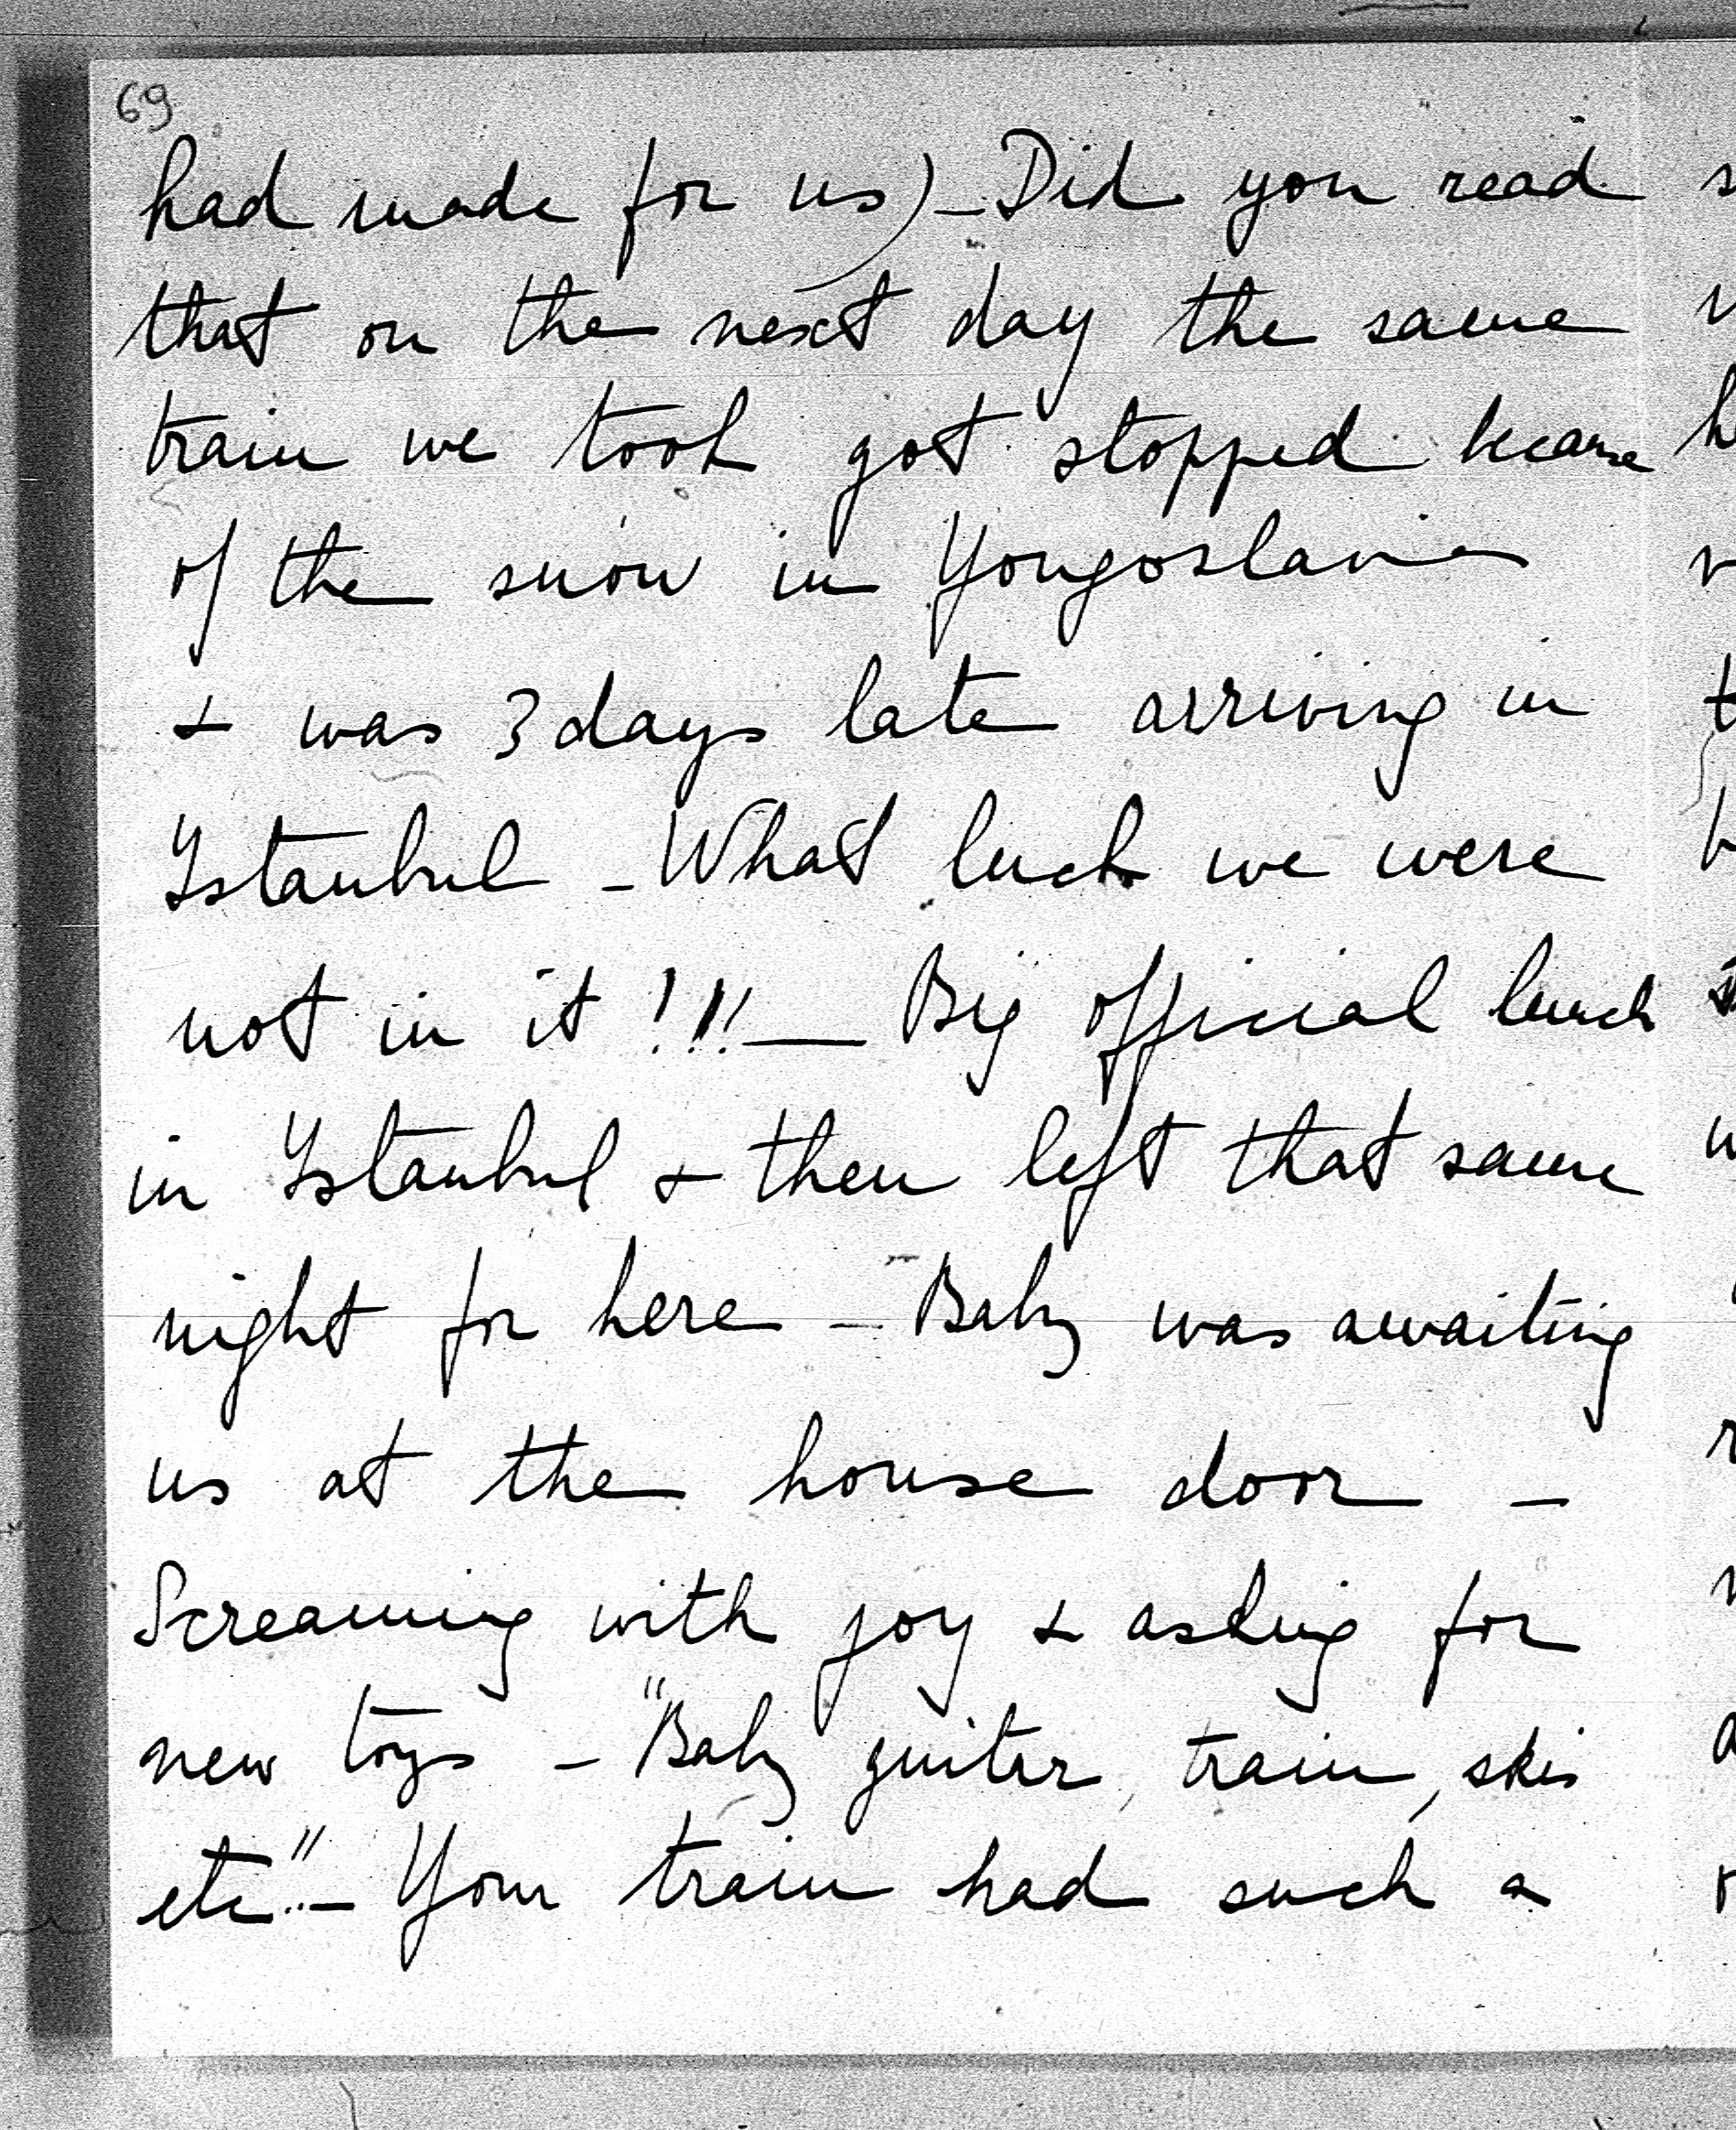 69
had made for us) – Did you read
that on the next day the same
train we took got stopped because
of the snow in Yougoslavia
& was 3 days late arriving in
Istanbul – What luck we were
not in it !!!! — Big official lunch
in Istanbul & then left that same
night for here – Baby was awaiting
us at the house door –
Screaming with joy & asking for
new toys – "Baby guitar, train, skis
etc". – Your train had such a